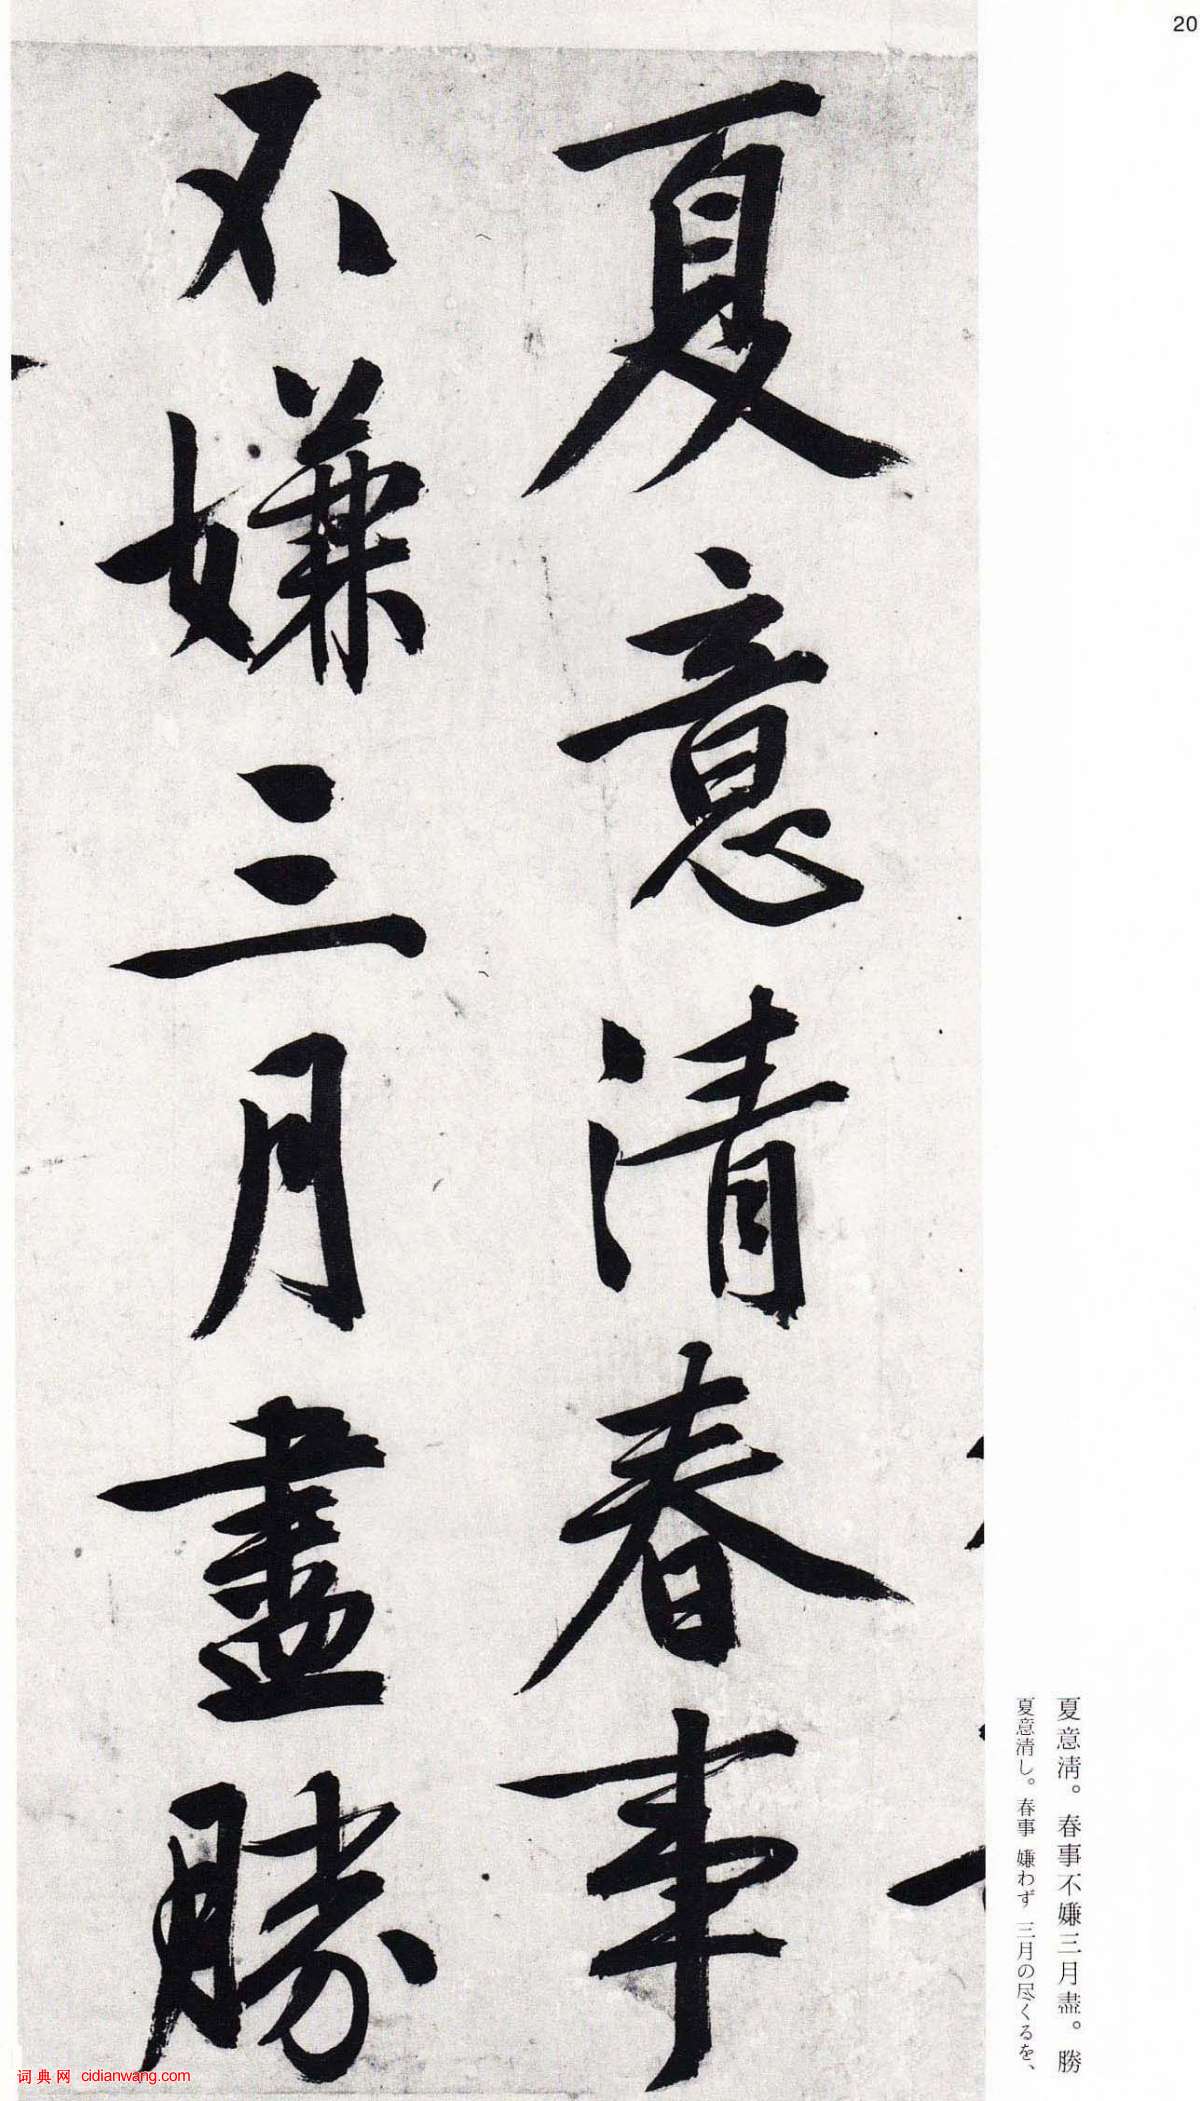 20
夏意清春事
不嫌三月盡勝
夏意淸。春事不嫌三月盡。勝
夏意清し。春事 嫌わず 三月の尽くるを、
词典网 cidianwang.com